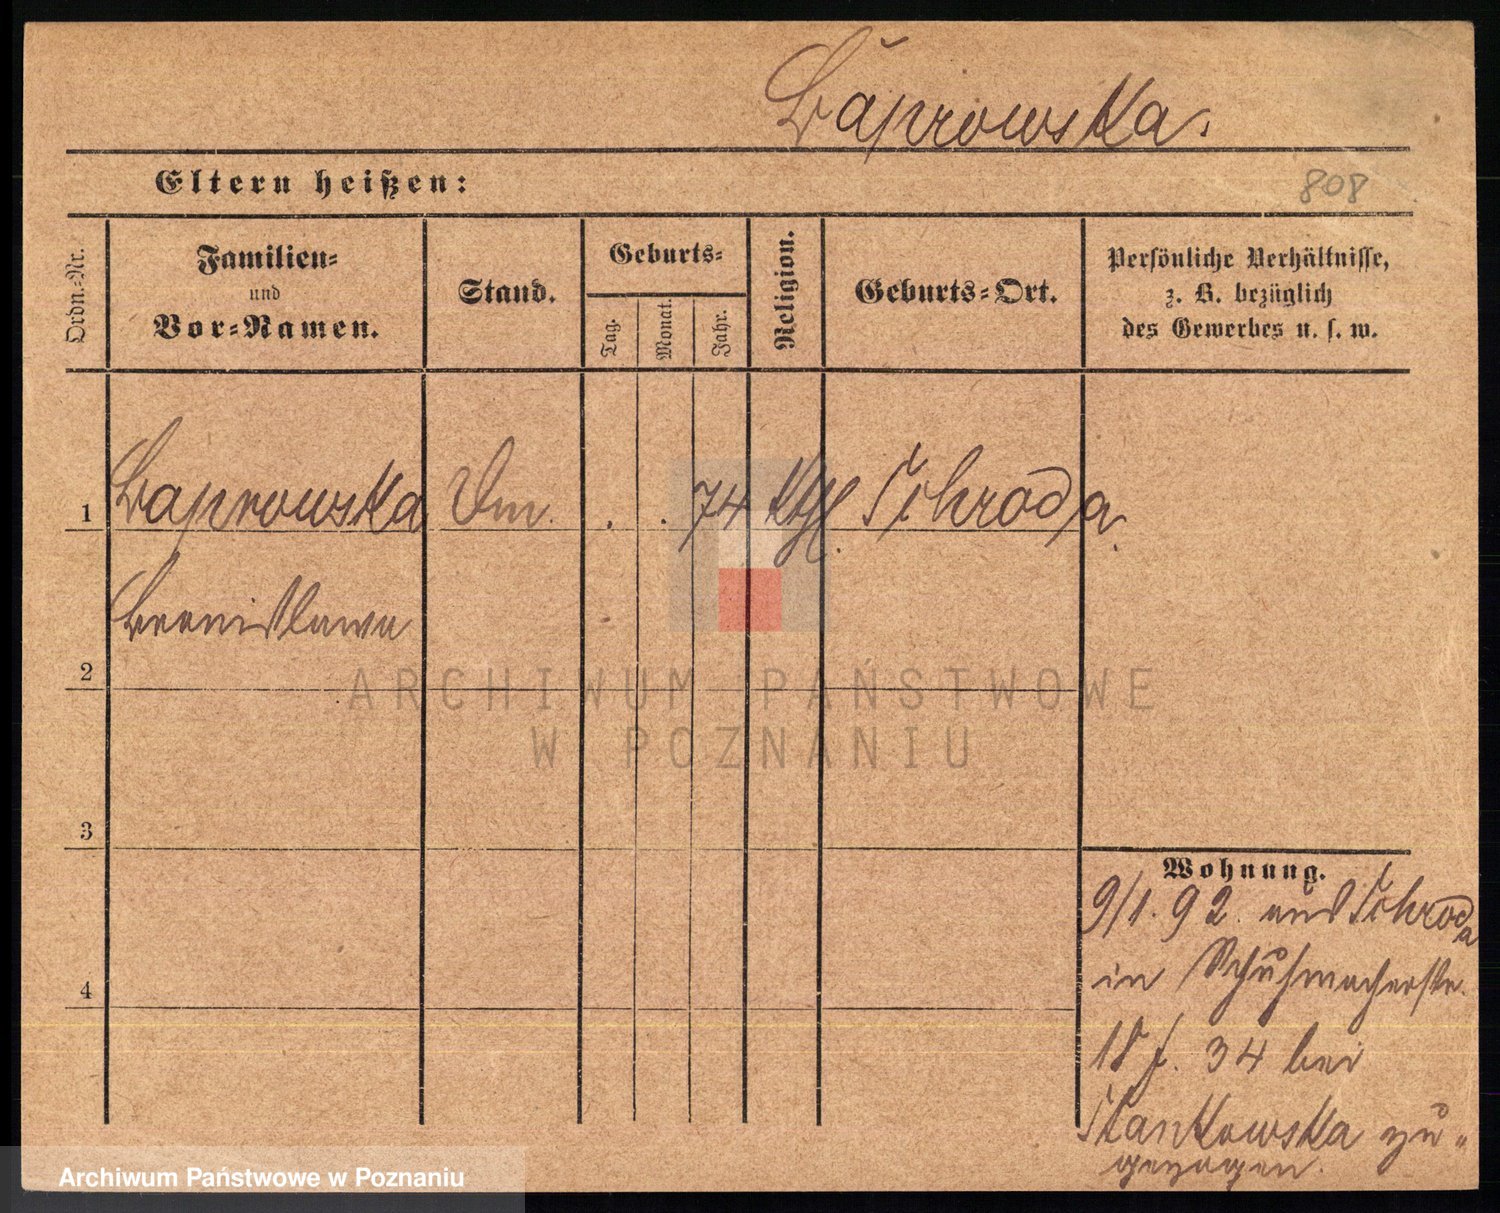 Łaprowska.
Eltern heißen:
808
Ordn.-Nr.
Familien-
und
Vor-Namen.
Stand.
Geburts-
Tag.
Monat.
Jahr.
Religion.
Geburts-Ort.
Persönliche Verhältnisse,
z. B. bezüglich
des Gewerbes u. s. w.
1
Łaprowska
. . 74 Kth. Schroda.
Bronislawa
2
3
4
Wohnung.
9/1. 92. aus Schroda
in Schuhmacherstr.
34 bei
Stankowska zu-
gezogen.
ARCHIWUM PAŃSTWOWE
W POZNANIU
Archiwum Państwowe w Poznaniu